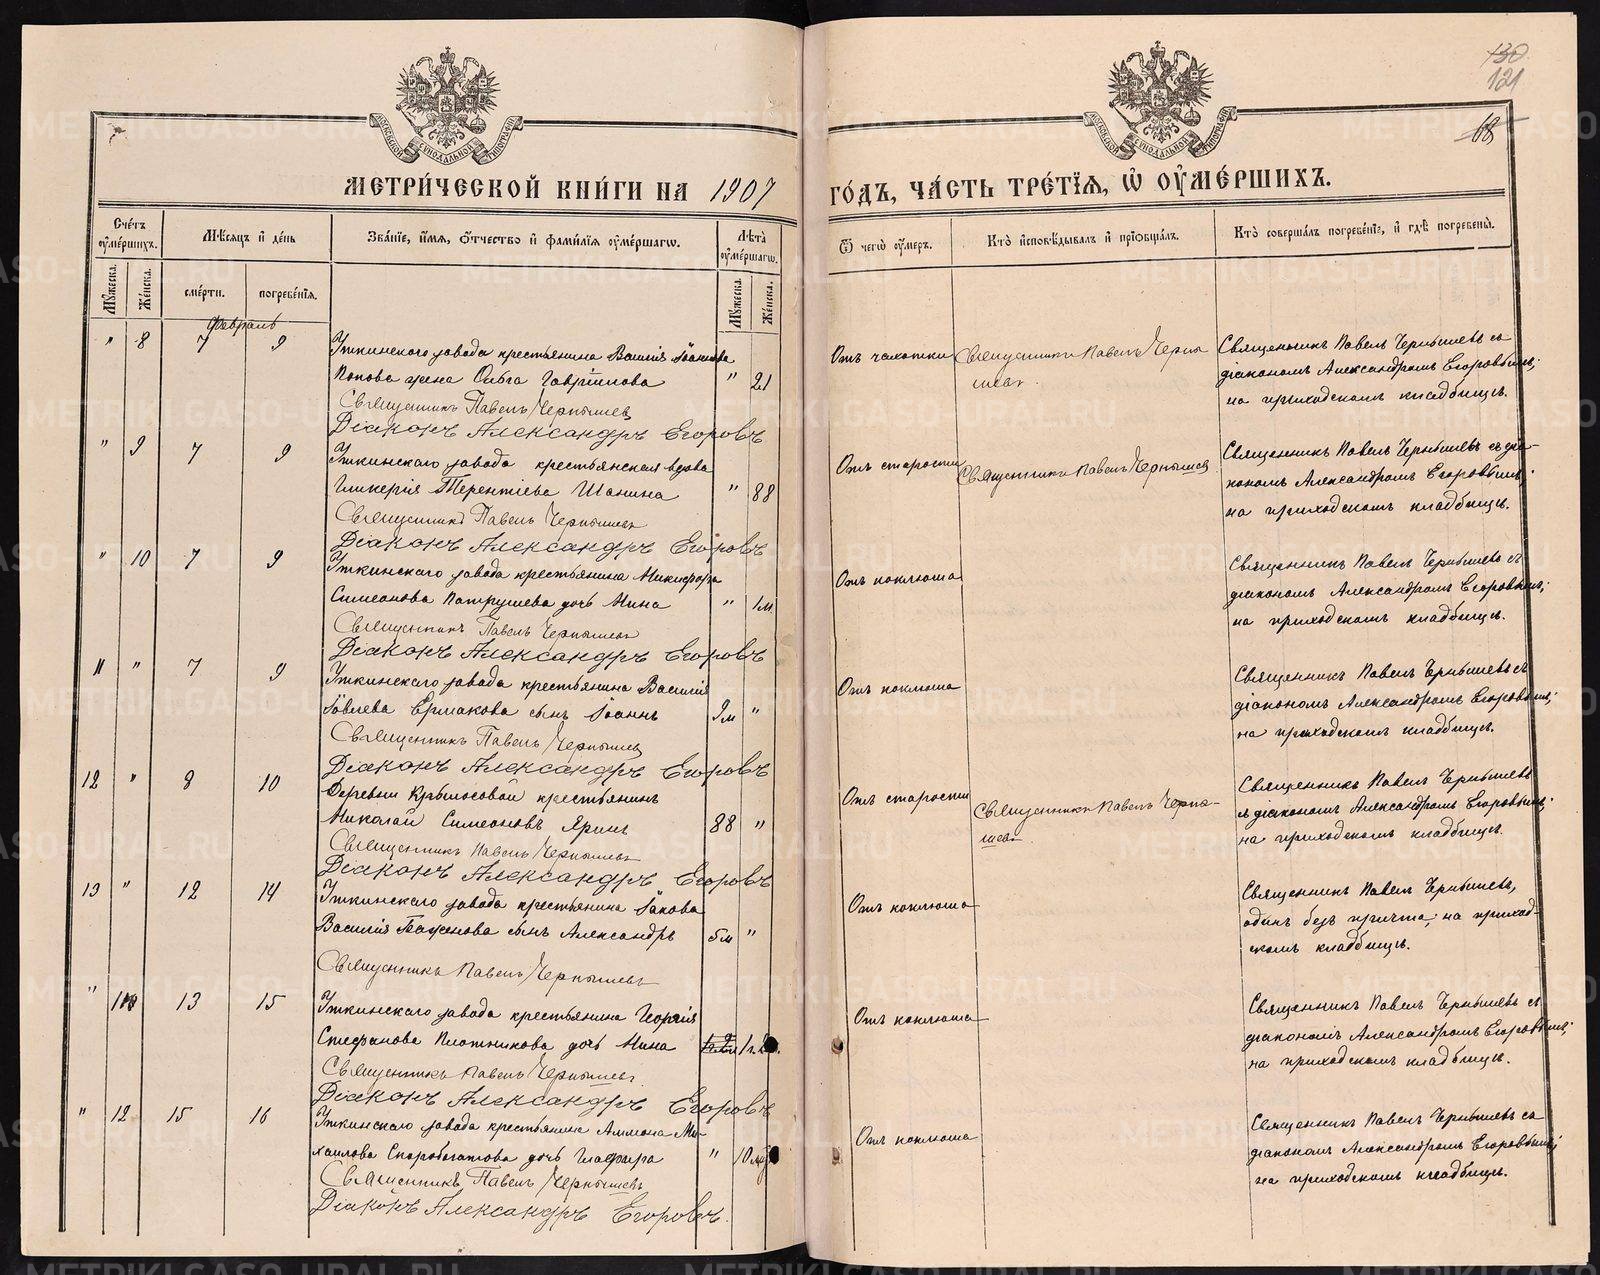 130
121
68
МЕТРИ́ЧЕСКОЙ КНИ́ГИ НА 1907
ГО́ДЪ, ЧА́СТЬ ТРЕ́ТЇѦ, Ѡ҆ ОУ҆МЕ́РШИХЪ.
Сче́тъ оу҆ме́ршихъ.
Мѣ́сяцъ и҆ де́нь
Зва́нїе, и҆́мя, ѻ҆́тчество и҆ фами́лїя оу҆ме́ршагѡ.
Лѣ́та оу҆ме́ршагѡ.
Ѿ чегѡ̀ оу҆́меръ.
Кто̀ и҆сповѣ́дывалъ и҆ прїѻбща́лъ.
Кто̀ соверша́лъ погребе́нїе, и҆ гдѣ̀ погребены̀.
Мꙋ́жеска.
Же́нска.
сме́рти.
погребе́нїя.
Мꙋ́жеска.
Же́нска.
Февраль
" 8 7 9 Уткинскаго завода крестьянина Василія Іоаннова
Попова жена Ольга Гавріилова " 21
Священникъ Павелъ Чернышев
Діаконъ Александръ Егоровъ
Отъ чахотки
Священники Павелъ Черны
шев
Священникъ Павелъ Чернышевъ съ
діакономъ Александромъ Егоровымъ;
на приходскомъ кладбищѣ.
" 9 7 9 Уткинскаго завода крестьянская вдова
Гликерія Терентіева Шанина " 88
Священникъ Павелъ Чернышев
Діаконъ Александръ Егоровъ
Отъ старости
Священники Павелъ Чернышев
Священникъ Павелъ Чернышевъ съ діа-
кономъ Александромъ Егоровымъ;
на приходскомъ кладбищѣ.
" 10 7 9 Уткинскаго завода крестьянина Никифора
Симеонова Патрушева дочь Нина " 1 м
Священникъ Павелъ Чернышев
Діаконъ Александръ Егоровъ
Отъ коклюша
Священникъ Павелъ Чернышевъ съ
діакономъ Александромъ Егоровымъ;
на приходскомъ кладбищѣ.
11 " 7 9 Уткинскаго завода крестьянина Василія
Іовлева Ермакова сынъ Іоаннъ 9 м "
Священникъ Павелъ Чернышев
Діаконъ Александръ Егоровъ
Отъ коклюша
Священникъ Павелъ Чернышевъ съ
діакономъ Александромъ Егоровымъ;
на приходскомъ кладбищѣ.
12 " 8 10 Деревни Крылосовой крестьянинъ
Николай Симеоновъ Яринъ 88 "
Священникъ Павелъ Чернышев
Діаконъ Александръ Егоровъ
Отъ старости
Священники Павелъ Черны-
шев
Священникъ Павелъ Чернышевъ
съ діакономъ Александромъ Егоровымъ;
на приходскомъ кладбищѣ.
13 " 12 14 Уткинскаго завода крестьянина Іакова
Василія Баженова сынъ Александръ 5 м "
Священникъ Павелъ Чернышев
Отъ коклюша
Священникъ Павелъ Чернышевъ,
одинъ безъ причта; на приход-
скомъ кладбищѣ.
" 11 13 15 Уткинскаго завода крестьянина Георгія
Стефанова Плотникова дочь Нина 1 г.
Священникъ Павелъ Чернышев
Діаконъ Александръ Егоровъ
Отъ коклюша
Священникъ Павелъ Чернышевъ съ
діакономъ Александромъ Егоровымъ;
на приходскомъ кладбищѣ.
" 12 15 16 Уткинскаго завода крестьянина Аммона Ми-
хаилова Скоробогатова дочь Глафира " 10 м
Священникъ Павелъ Чернышевъ
Діаконъ Александръ Егоровъ.
Отъ коклюша
Священникъ Павелъ Чернышевъ съ
діакономъ Александромъ Егоровымъ;
на приходскомъ кладбищѣ.